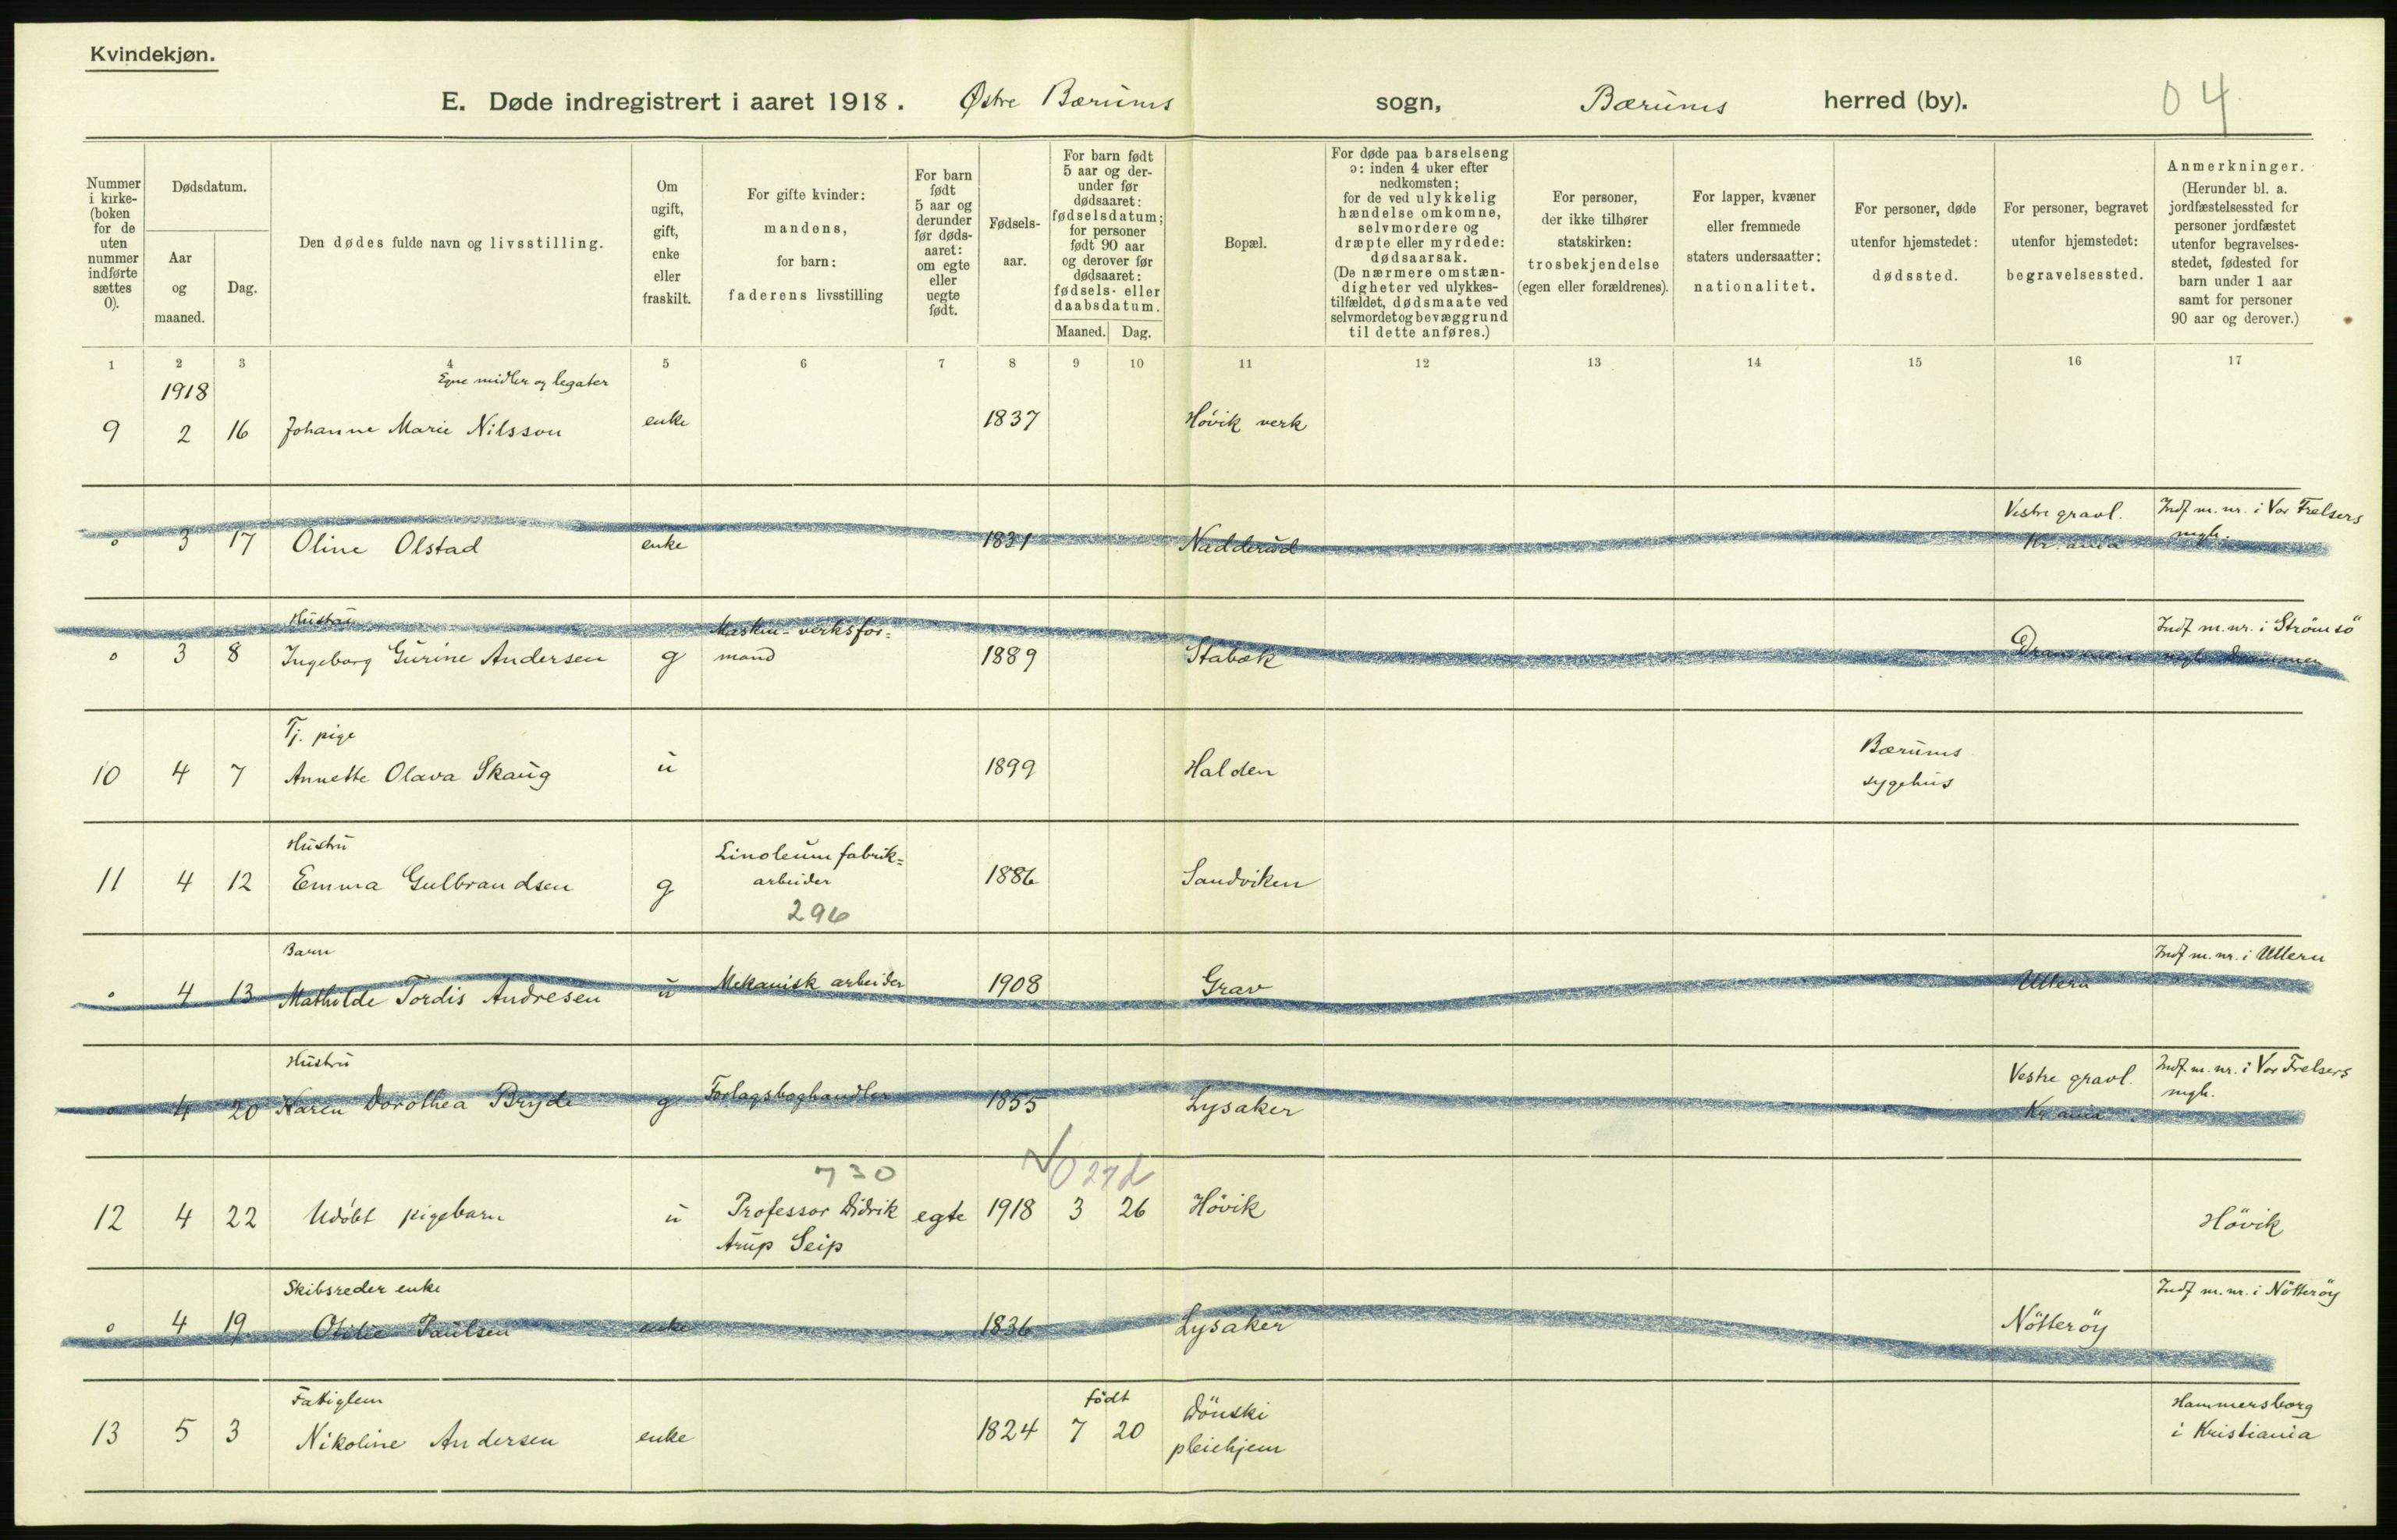 Kvindekjøn.
E. Døde indregistrert i aaret 1918. Østre Bærums sogn, Bærums herred (by). 04
Nummer i kirke- (boken for de uten nummer indførte sættes 0).
Dødsdatum.
Aar og maaned.
Dag.
Den dødes fulde navn og livsstilling.
Om ugift, gift, enke eller fraskilt.
For gifte kvinder: mandens, for barn: faderens livsstilling
For barn født 5 aar og derunder før døds- aaret: om egte eller uegte født.
Fødsels- aar.
For barn født 5 aar og der- under før dødsaaret: fødselsdatum; for personer født 90 aar og derover før dødsaaret: fødsels- eller daabsdatum.
Maaned. Dag.
Bopæl.
For døde paa barselseng ɔ: inden 4 uker efter nedkomsten; for de ved ulykkelig hændelse omkomne, selvmordere og dræpte eller myrdede: dødsaarsak. (De nærmere omstæn- digheter ved ulykkes- tilfældet, dødsmaate ved selvmordet og bevæggrund til dette anføres.)
For personer, der ikke tilhører statskirken: trosbekjendelse (egen eller forældrenes).
For lapper, kvæner eller fremmede staters undersaatter: nationalitet.
For personer, døde utenfor hjemstedet: dødssted.
For personer, begravet utenfor hjemstedet: begravelsessted.
Anmerkninger. (Herunder bl. a. jordfæstelsessted for personer jordfæstet utenfor begravelses- stedet, fødested for barn under 1 aar samt for personer 90 aar og derover.)
1 2 3 4 5 6 7 8 9 10 11 12 13 14 15 16 17
1918 Egne midler og legater
9 2 16 Johanne Marie Nilsson enke 1837 Hövik verk
Vestre gravl. Indf m. nr. i Vor Frelsers
0 3 17 Oline Olstad enke 1831 Nadderud Kr.ania mgh.
Hustru Maskin-verksfor= Indf m. nr. i Strömsö
0 3 8 Ingeborg Gurine Andersen g mand 1889 Stabæk Drammen mgh Drammen
Tj. pige Bærums
10 4 7 Annette Olava Skaug u 1899 Halden sygehus
Hustru Linoleumfabrik=
11 4 12 Emma Gulbrandsen g arbeider 1886 Sandviken
296
Barn Indf m. nr. i Ullern
0 4 13 Mathilde Tordis Andresen u Mekanisk arbeider 1908 Grav Ullern
Hustru Vestre gravl. Indf. m. nr. i Vor Frelsers
0 4 20 Karen Dorothea Bryde g Forlagsboghandler 1855 Lysaker Kr.ania mgh.
730
12 4 22 Udöbt pigebarn u Professor Didrik egte 1918 3 26 Hövik Hövik
Arup Seip
Skibsreder enke Indf m. nr. i Nötteröy
0 4 19 Otilie Paulsen enke 1836 Lysaker Nötteröy
Fattiglem födt Dönski Hammersborg
13 5 3 Nikoline Andersen enke 1824 7 20 pleiehjem i Kristiania